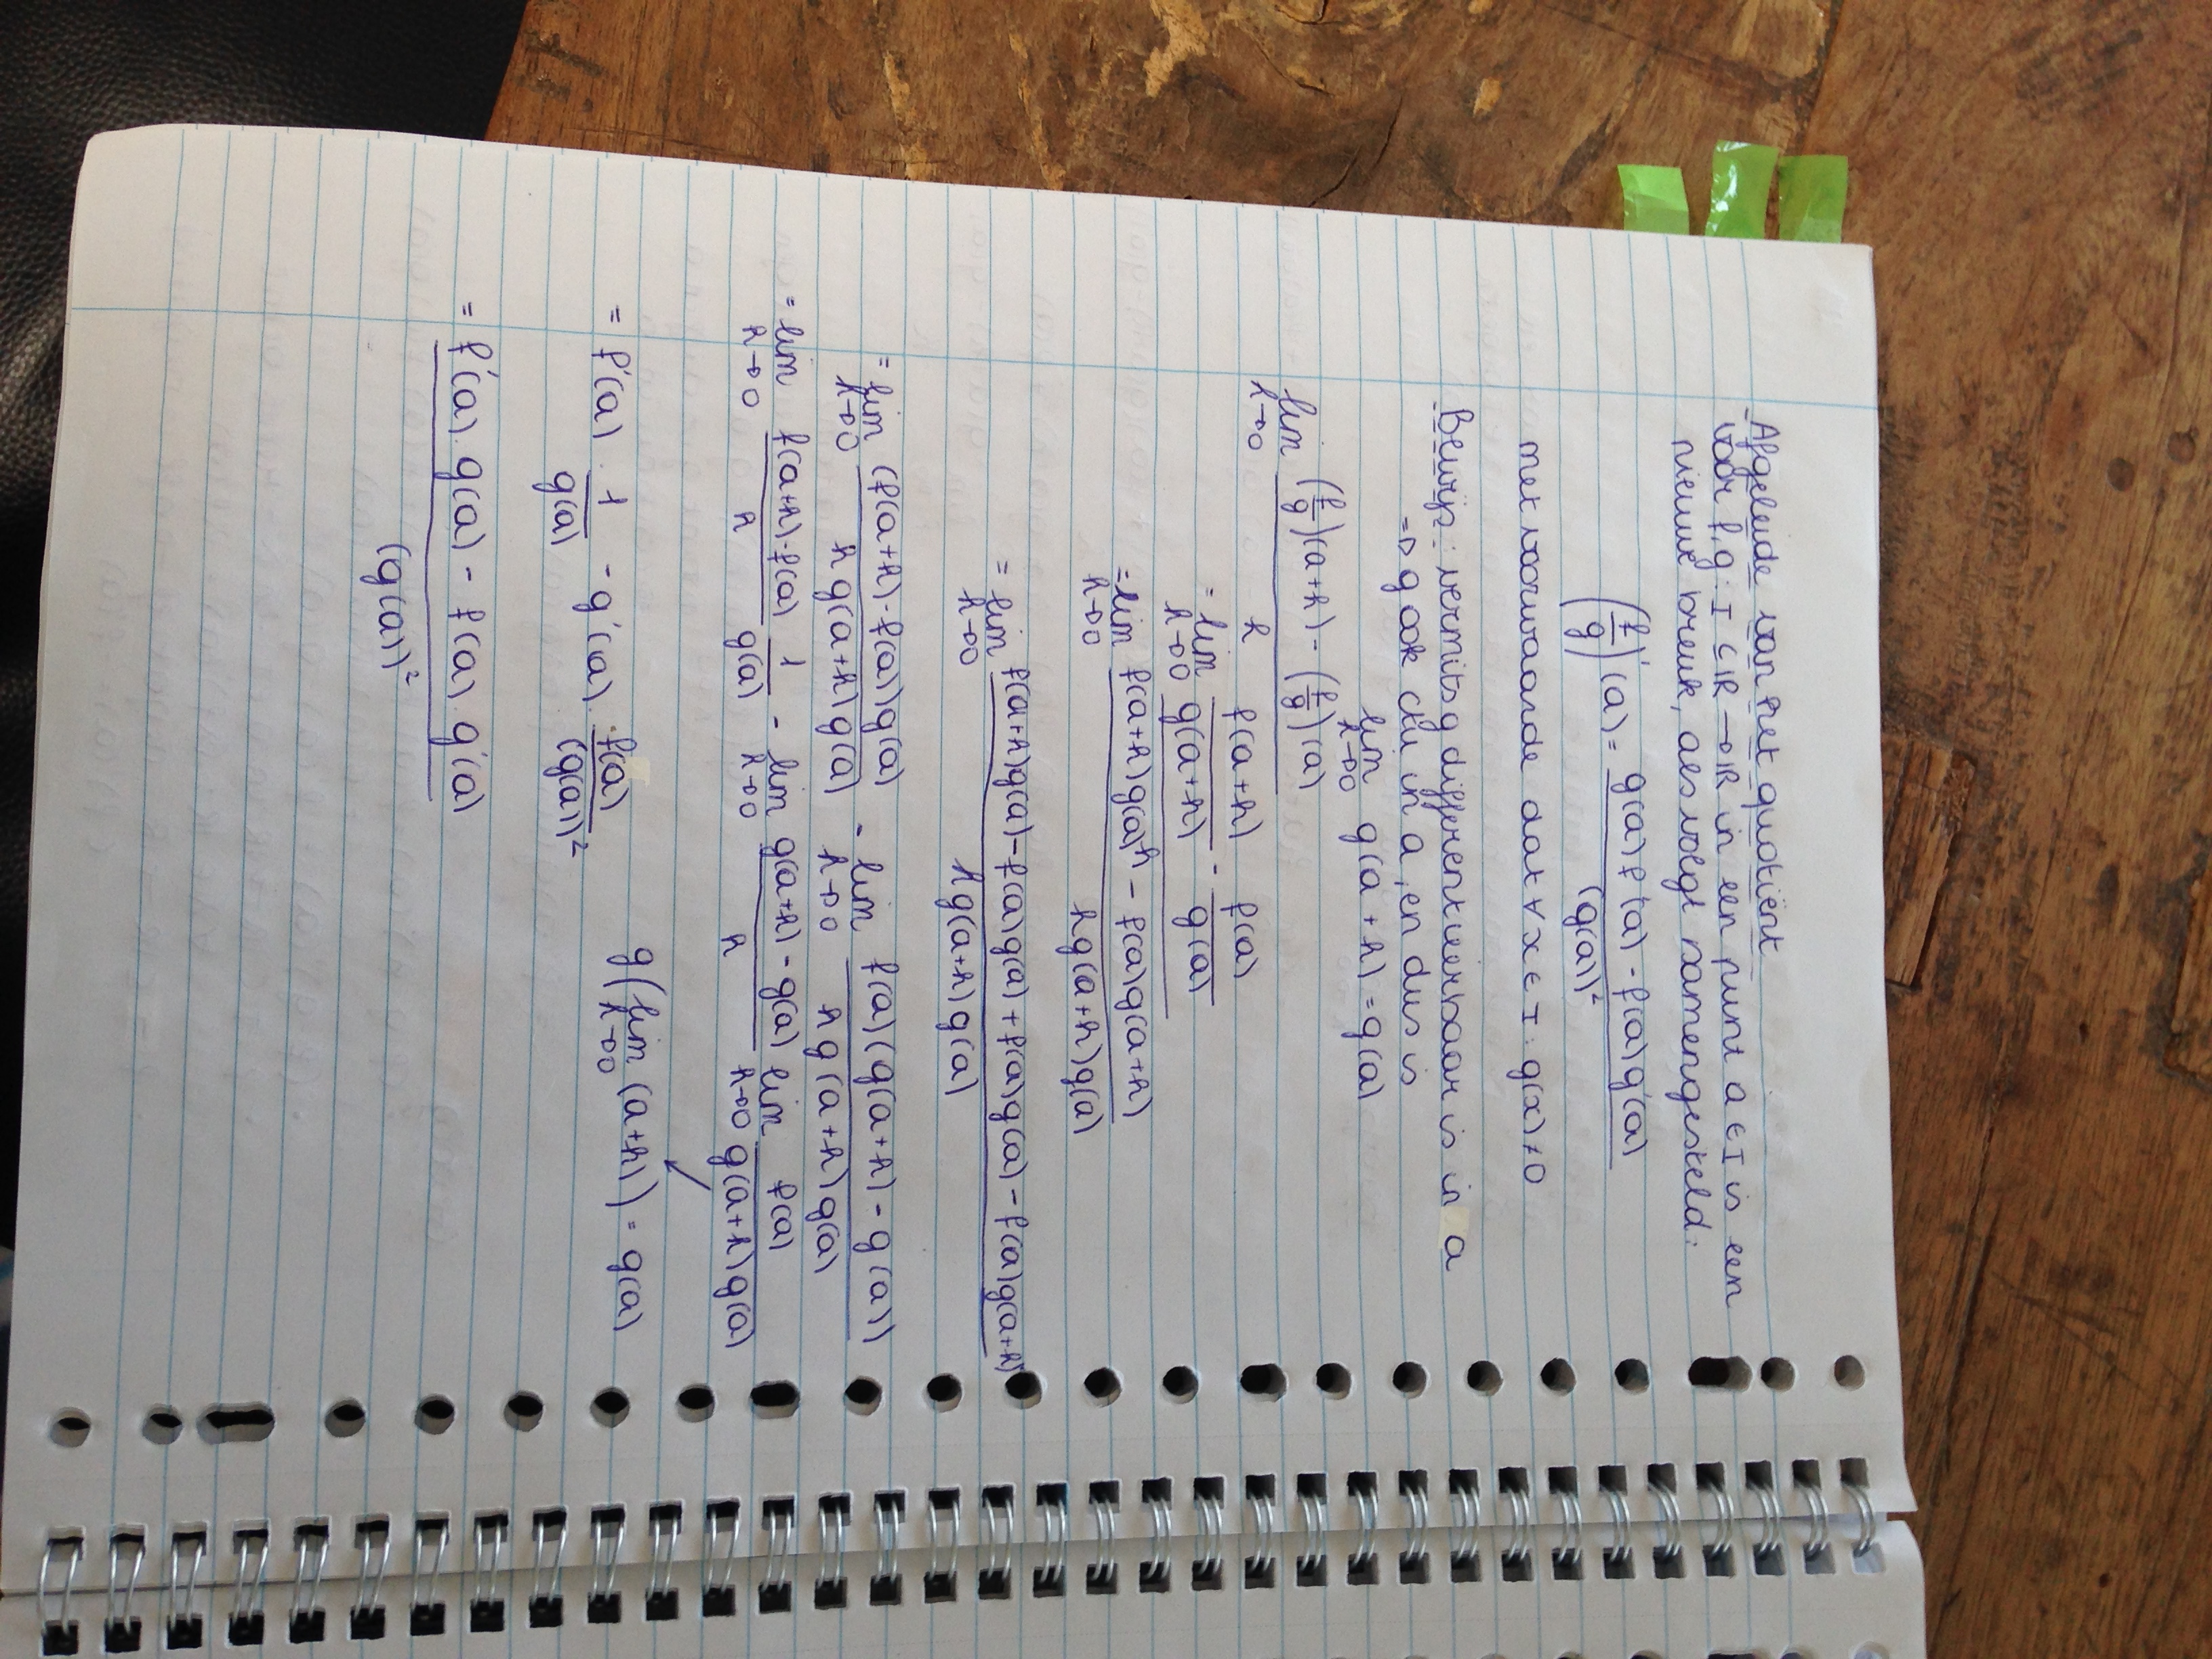 Afgeleide van het quotiënt
voor f, g : I ⊆ ℝ → ℝ in een punt a ∈ I is een
nieuwe breuk, als volgt samengesteld:
(f/g)'(a) = (g(a) f'(a) - f(a) g'(a)) / (g(a))²
met voorwaarde dat ∀ x ∈ I : g(x) ≠ 0
Bewijs : vermits g differentieerbaar is in a
⇒ g ook ctu in a, en dus is
lim h→0 g(a + h) = g(a)
lim h→0 ((f/g)(a+h) - (f/g)(a)) / h
= lim h→0 (f(a+h)/g(a+h) - f(a)/g(a)) / h
= lim h→0 (f(a+h)g(a) - f(a)g(a+h)) / (h g(a+h) g(a))
= lim h→0 (f(a+h)g(a) - f(a)g(a) + f(a)g(a) - f(a)g(a+h)) / (h g(a+h) g(a))
= lim h→0 ((f(a+h) - f(a))g(a)) / (h g(a+h) g(a)) - lim h→0 (f(a)(g(a+h) - g(a))) / (h g(a+h) g(a))
= lim h→0 (f(a+h) - f(a)) / h 1/g(a) - lim h→0 (g(a+h) - g(a)) / h lim h→0 f(a) / (g(a+h) g(a))
g(lim h→0 (a+h)) = g(a)
= f'(a) · 1/g(a) - g'(a) · f(a)/(g(a))²
= (f'(a) · g(a) - f(a) · g'(a)) / (g(a))²